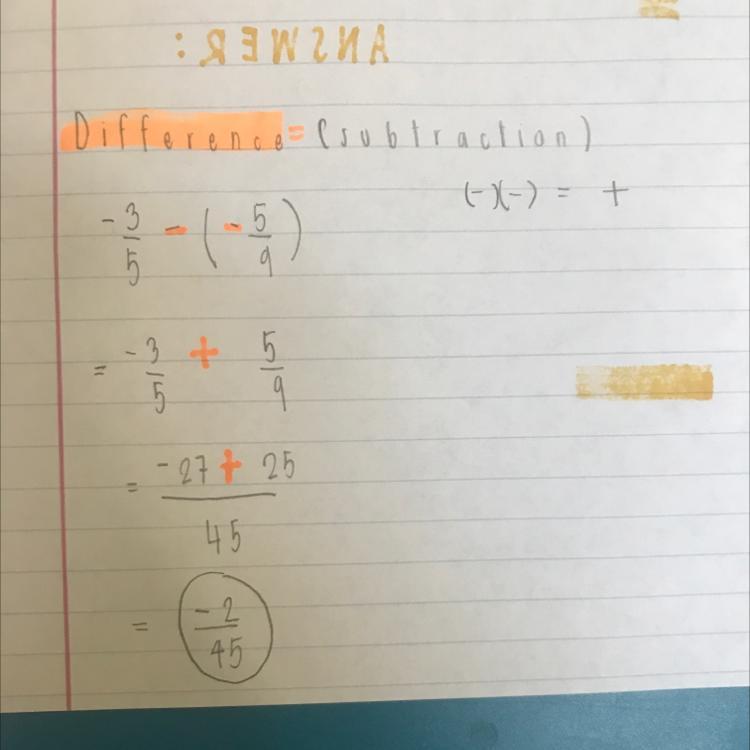 ANSWER:
Difference = (subtraction)
(-)(-) = +
-3/5 - (-5/9)
= -3/5 + 5/9
= -27 + 25
45
= -2/45